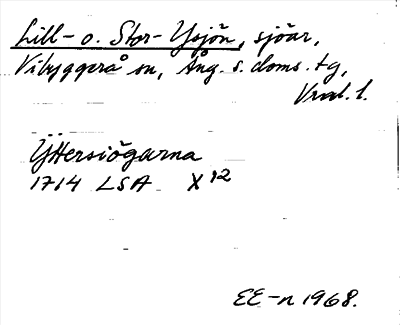 Lill- o. Stor-Ysjön, sjöar,
Vibyggerå sn, Ång. s. doms. tg,
Vnrl. l.
Ÿttersiögarna
1714 LSA X 12
EE-n 1968.